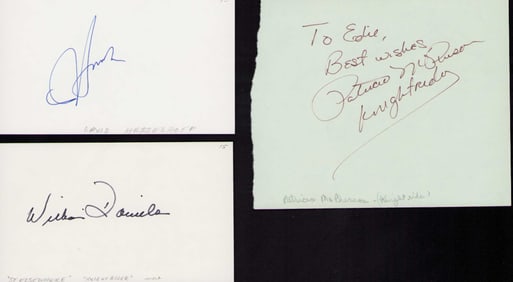 DAVID HASSELHOFF
William Daniels
"ST ELSEWHERE" "KNIGHT RIDER"
To Edie,
Best wishes,
Patricia McPherson
Knightrider
Patricia McPherson - (Knightrider)